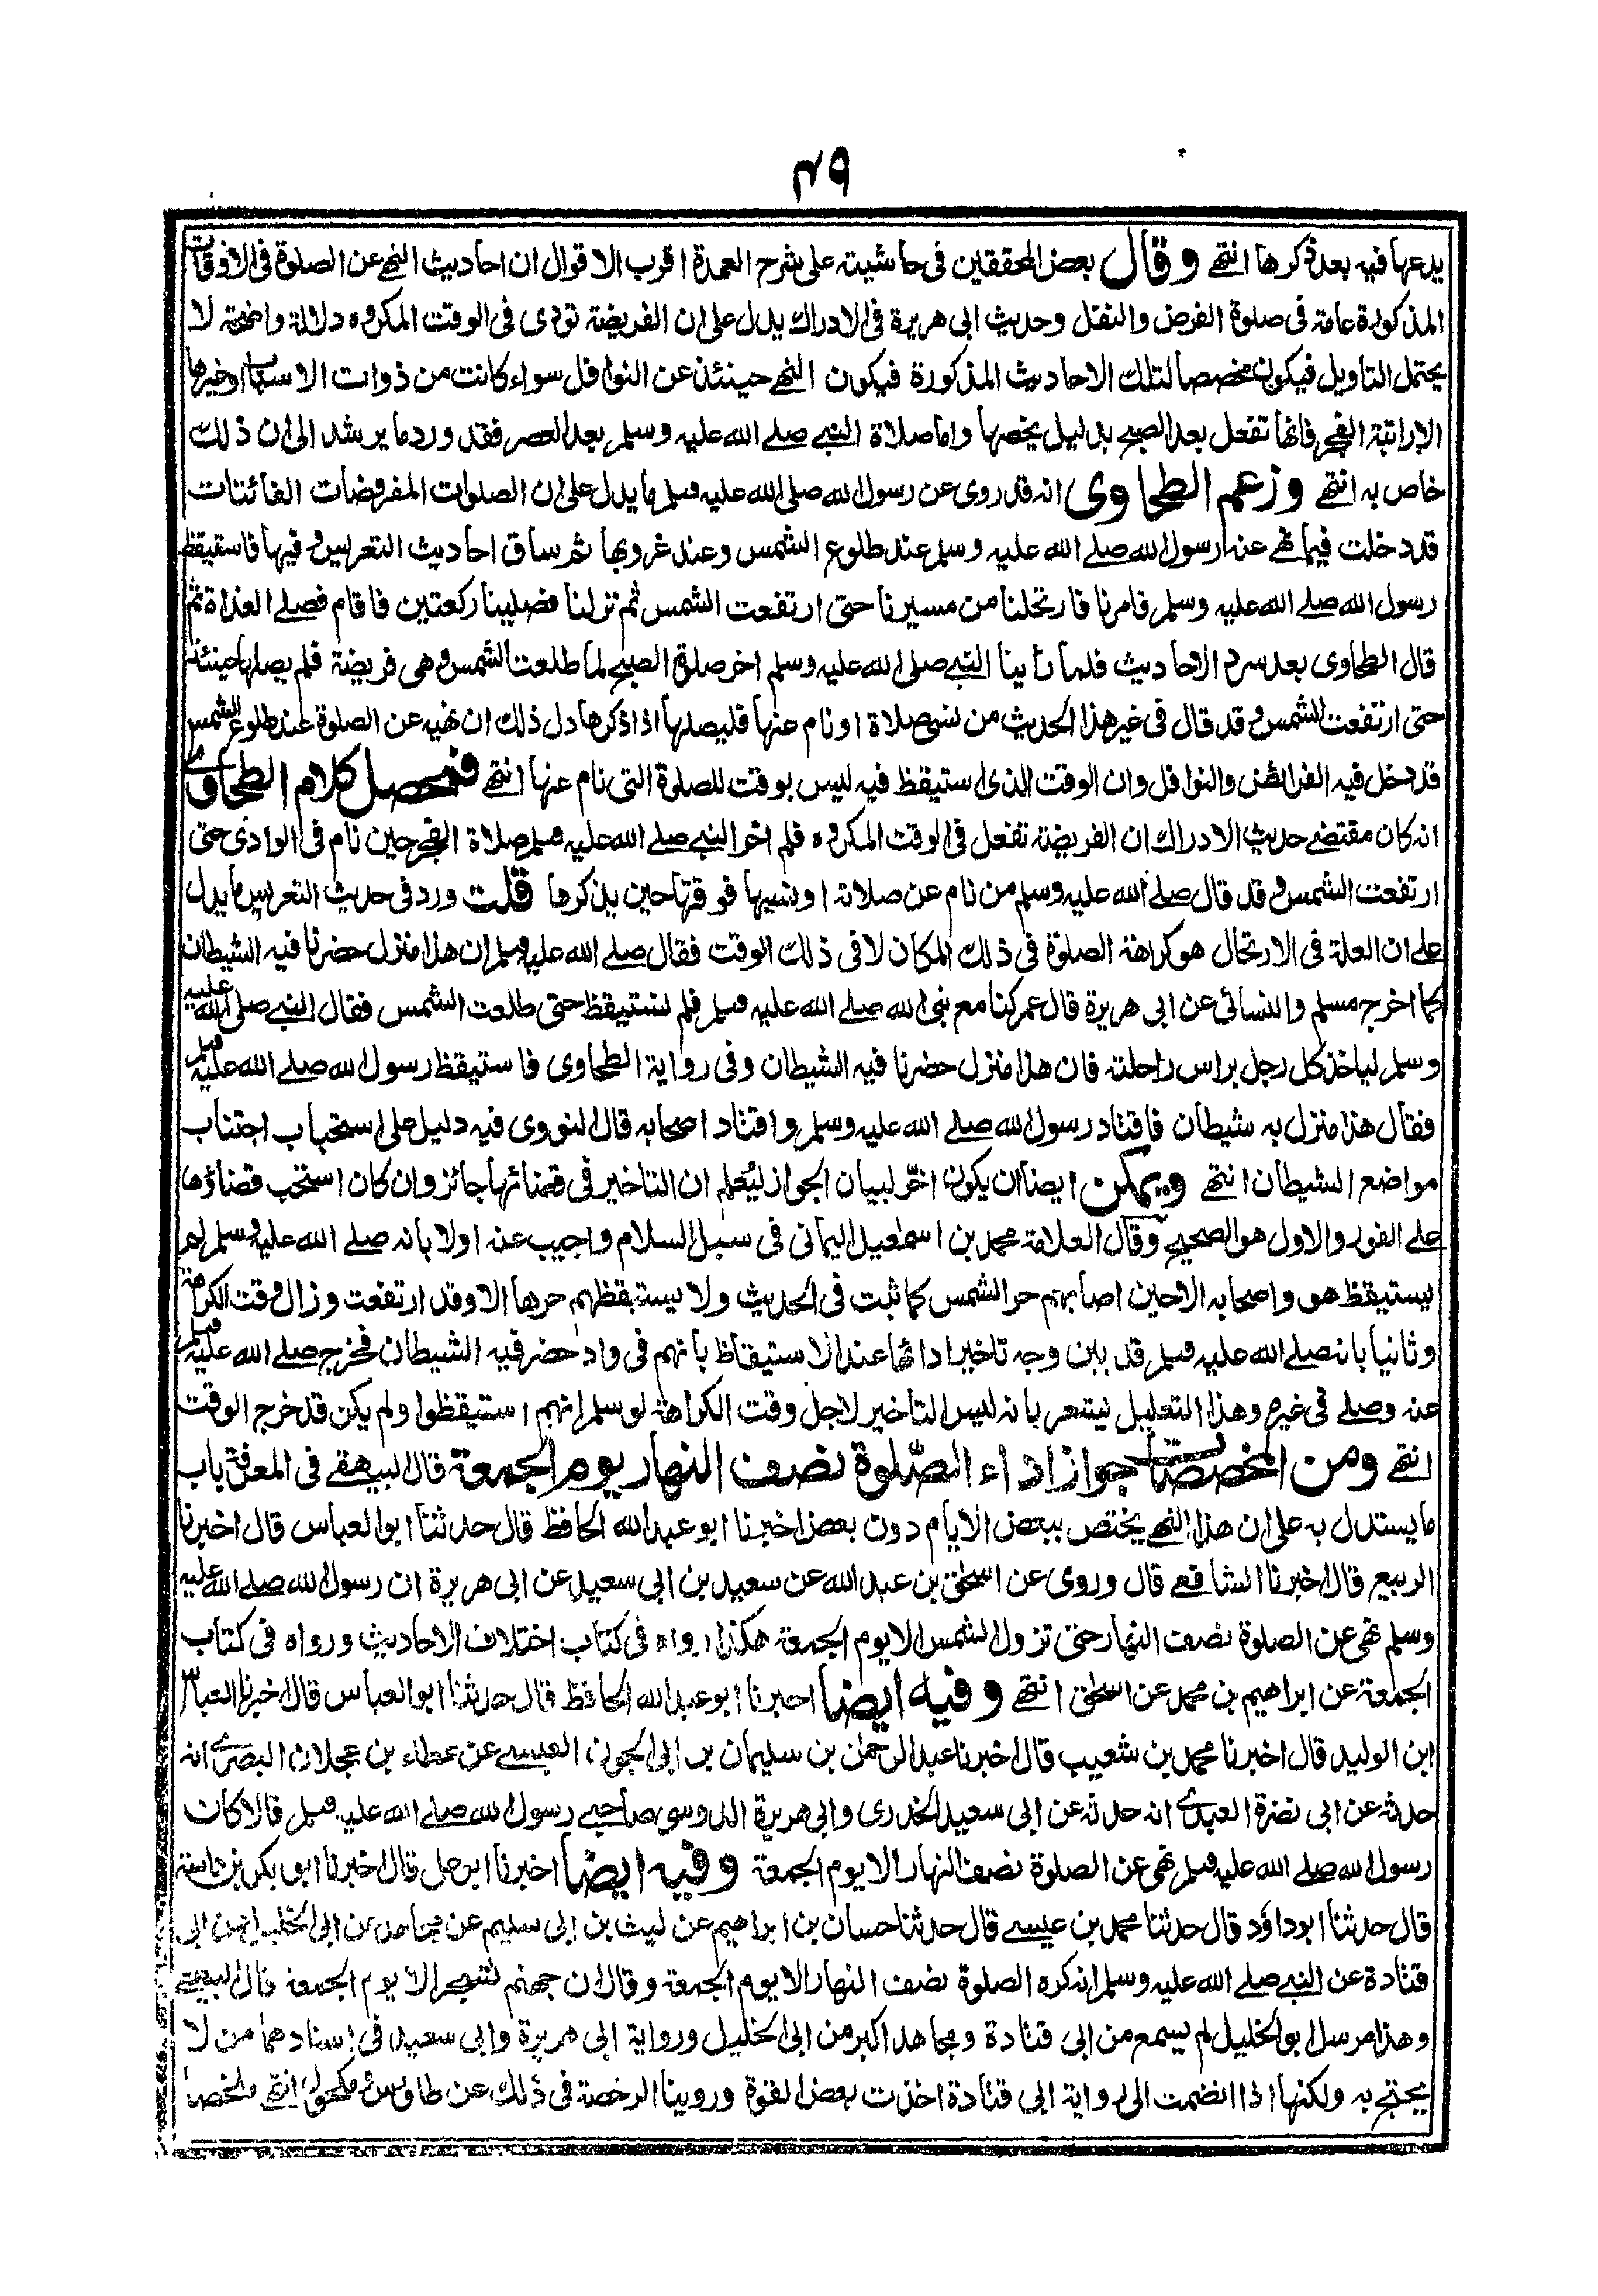 ٤٩
يدعها فيه بعد ذكرها انتهى وقال بعض المحققين فى حاشيته على شرح العمدة اقرب الاقوال ان احاديث النهى عن الصلوة فى الاوقات
المذكورة عامة فى صلوة الفرض والنفل وحديث ابى هريرة فى الادراك يدل على ان الفريضة تودى فى الوقت المكروه دلالة واضحة لا
يحتمل التاويل فيكون مخصصا لتلك الاحاديث المذكورة فيكون النهى حينئذ عن النوافل سواء كانت من ذوات الاسباب او غيرها
الا راتبة الفجر فانها تفعل بعد الصبح بدليل يخصها واما صلاة النبى صلى الله عليه وسلم بعد العصر فقد ورد ما يرشد الى ان ذلك
خاص به انتهى وزعم الطحاوى انه قد روى عن رسول الله صلى الله عليه وسلم ما يدل على ان الصلوات المفروضات الفائتات
قد دخلت فيما نهى عنه رسول الله صلى الله عليه وسلم عند طلوع الشمس وعند غروبها ثم ساق احاديث التعريس وفيها فاستيقظ
رسول الله صلى الله عليه وسلم فامرنا فارتحلنا من مسيرنا حتى ارتفعت الشمس ثم نزلنا فصلينا ركعتين فاقام فصلى الغداة ثم
قال الطحاوى بعد سرد الاحاديث فلما رأينا النبى صلى الله عليه وسلم اخر صلوة الصبح لما طلعت الشمس وهى فريضة فلم يصلها حينئذ
حتى ارتفعت الشمس وقد قال فى غير هذا الحديث من نسى صلاة او نام عنها فليصلها اذا ذكرها دل ذلك ان نهيه عن الصلوة عند طلوع الشمس
قد دخل فيه الفرائض والنوافل وان الوقت الذى استيقظ فيه ليس بوقت للصلوة التى نام عنها انتهى فمحصل كلام الطحاوى
انه كان مقتضى حديث الادراك ان الفريضة تفعل فى الوقت المكروه فلم اخر النبى صلى الله عليه وسلم صلاة الفجر حين نام فى الوادى حتى
ارتفعت الشمس وقد قال صلى الله عليه وسلم من نام عن صلاته او نسيها فوقتها حين يذكرها قلت ورد فى حديث التعريس ما يدل
على ان العلة فى الارتحال هو كراهة الصلوة فى ذلك المكان لا فى ذلك الوقت فقال صلى الله عليه وسلم ان هذا منزل حضرنا فيه الشيطان
كما اخرج مسلم والنسائى عن ابى هريرة قال عمر كنا مع نبى الله صلى الله عليه وسلم فلم نستيقظ حتى طلعت الشمس فقال النبى صلى الله عليه
وسلم لياخذ كل رجل براس راحلته فان هذا منزل حضرنا فيه الشيطان وفى رواية الطحاوى فاستيقظ رسول الله صلى الله عليه وسلم
فقال هذا منزل به شيطان فاقتاد رسول الله صلى الله عليه وسلم واقتاد اصحابه قال النووى فيه دليل على استحباب اجتناب
مواضع الشيطان انتهى ويمكن ايضا ان يكون اخّر لبيان الجواز ليُعلم ان التاخير فى قضائها جائز وان كان استحب قضاؤها
على الفور والاول هو الصحيح وقال العلامة محمد بن اسمعيل اليمانى فى سبل السلام واجيب عنه اولا بانه صلى الله عليه وسلم لم
يستيقظ هو واصحابه الا حين اصابهم حر الشمس كما ثبت فى الحديث ولا يستيقظهم حرها الا وقد ارتفعت وزال وقت الكراهة
وثانيا بانه صلى الله عليه وسلم قد بين وجه تاخير ادائها عند الاستيقاظ بانهم فى واد حضر فيه الشيطان فخرج صلى الله عليه وسلم
عنه وصلى فى غيره وهذا التعليل يشعر بانه ليس التاخير لاجل وقت الكراهة لو سلم انهم استيقظوا ولم يكن قد خرج الوقت
انتهى ومن المخصصات جواز اداء الصّلوة نصف النهار يوم الجمعة قال البيهقى فى المعرفة باب
ما يستدل به على ان هذا النهى يختص ببعض الايام دون بعض اخبرنا ابو عبد الله الحافظ قال حدثنا ابو العباس قال اخبرنا
الربيع قال اخبرنا الشافعى قال وروى عن اسحق بن عبد الله عن سعيد بن ابى سعيد عن ابى هريرة ان رسول الله صلى الله عليه
وسلم نهى عن الصلوة نصف النهار حتى تزول الشمس الا يوم الجمعة هكذا رواه فى كتاب اختلاف الاحاديث ورواه فى كتاب
الجمعة عن ابراهيم بن محمد عن اسحق انتهى وفيه ايضا اخبرنا ابو عبد الله الحافظ قال حدثنا ابو العباس قال اخبرنا العباس
ابن الوليد قال اخبرنا محمد بن شعيب قال اخبرنا عبد الرحمن بن سليمان بن ابى الجون العبسى عن عطاء بن عجلان البصرى انه
حدثه عن ابى نضرة العبدى انه حدثه عن ابى سعيد الخدرى وابى هريرة الدوسى صاحبى رسول الله صلى الله عليه وسلم قالا كان
رسول الله صلى الله عليه وسلم نهى عن الصلوة نصف النهار الا يوم الجمعة وفيه ايضا اخبرنا ابو على قال اخبرنا ابو بكر بن داسة
قال حدثنا ابو داؤد قال حدثنا محمد بن عيسى قال حدثنا حسان بن ابراهيم عن ليث بن ابى سليم عن مجاهد عن ابى الخليل عن ابى
قتادة عن النبى صلى الله عليه وسلم انه كره الصلوة نصف النهار الا يوم الجمعة وقال ان جهنم تسجر الا يوم الجمعة قال البيهقى
وهذا مرسل ابو الخليل لم يسمع من ابى قتادة ومجاهد اكبر من ابى الخليل ورواية ابى هريرة وابى سعيد فى اسنادهما من لا
يحتج به ولكنها اذا انضمت الى رواية ابى قتادة اخذت بعض القوة وروينا الرخصة فى ذلك عن طاؤس ومكحول انتهى ملخصا